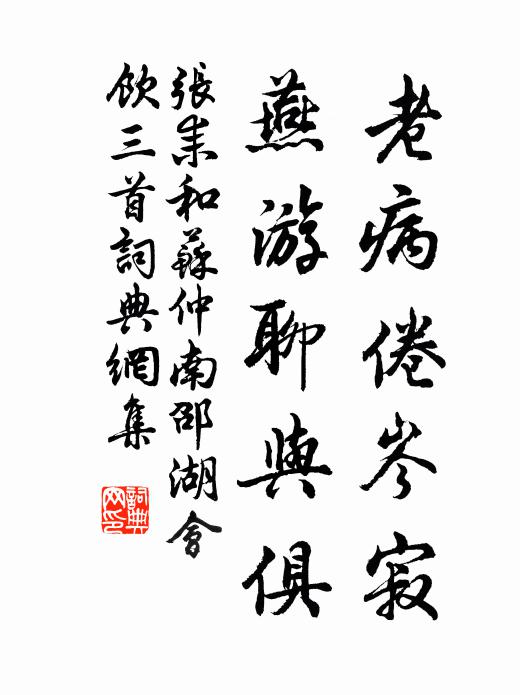 老病倦岑寂
燕游聊與俱
張耒和蘇仲南邵湖會
飲三首詞典網集
詞典
网印